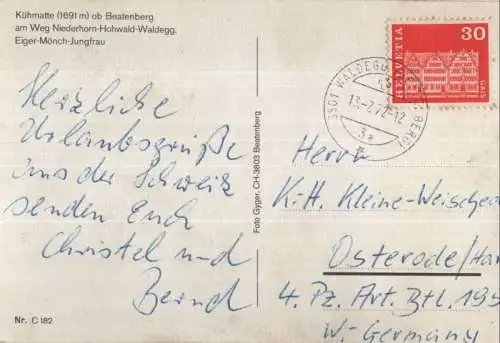 Kühmatte (1691 m) ob Beatenberg
am Weg Niederhorn-Hohwald-Waldegg.
Eiger-Mönch-Jungfrau
HELVETIA
30
GAIS
WALDEGG
13.-7.72-12
3a
Herzliche
Urlaubsgrüße
aus der Schweiz
senden Euch
Christel und
Bernd
Foto Gyger, CH-3803 Beatenberg
Herrn
K.-H. Kleine-Weische
Osterode/Har
4. Pz. Art. Btl. 195
W.-Germany
Nr. C 182